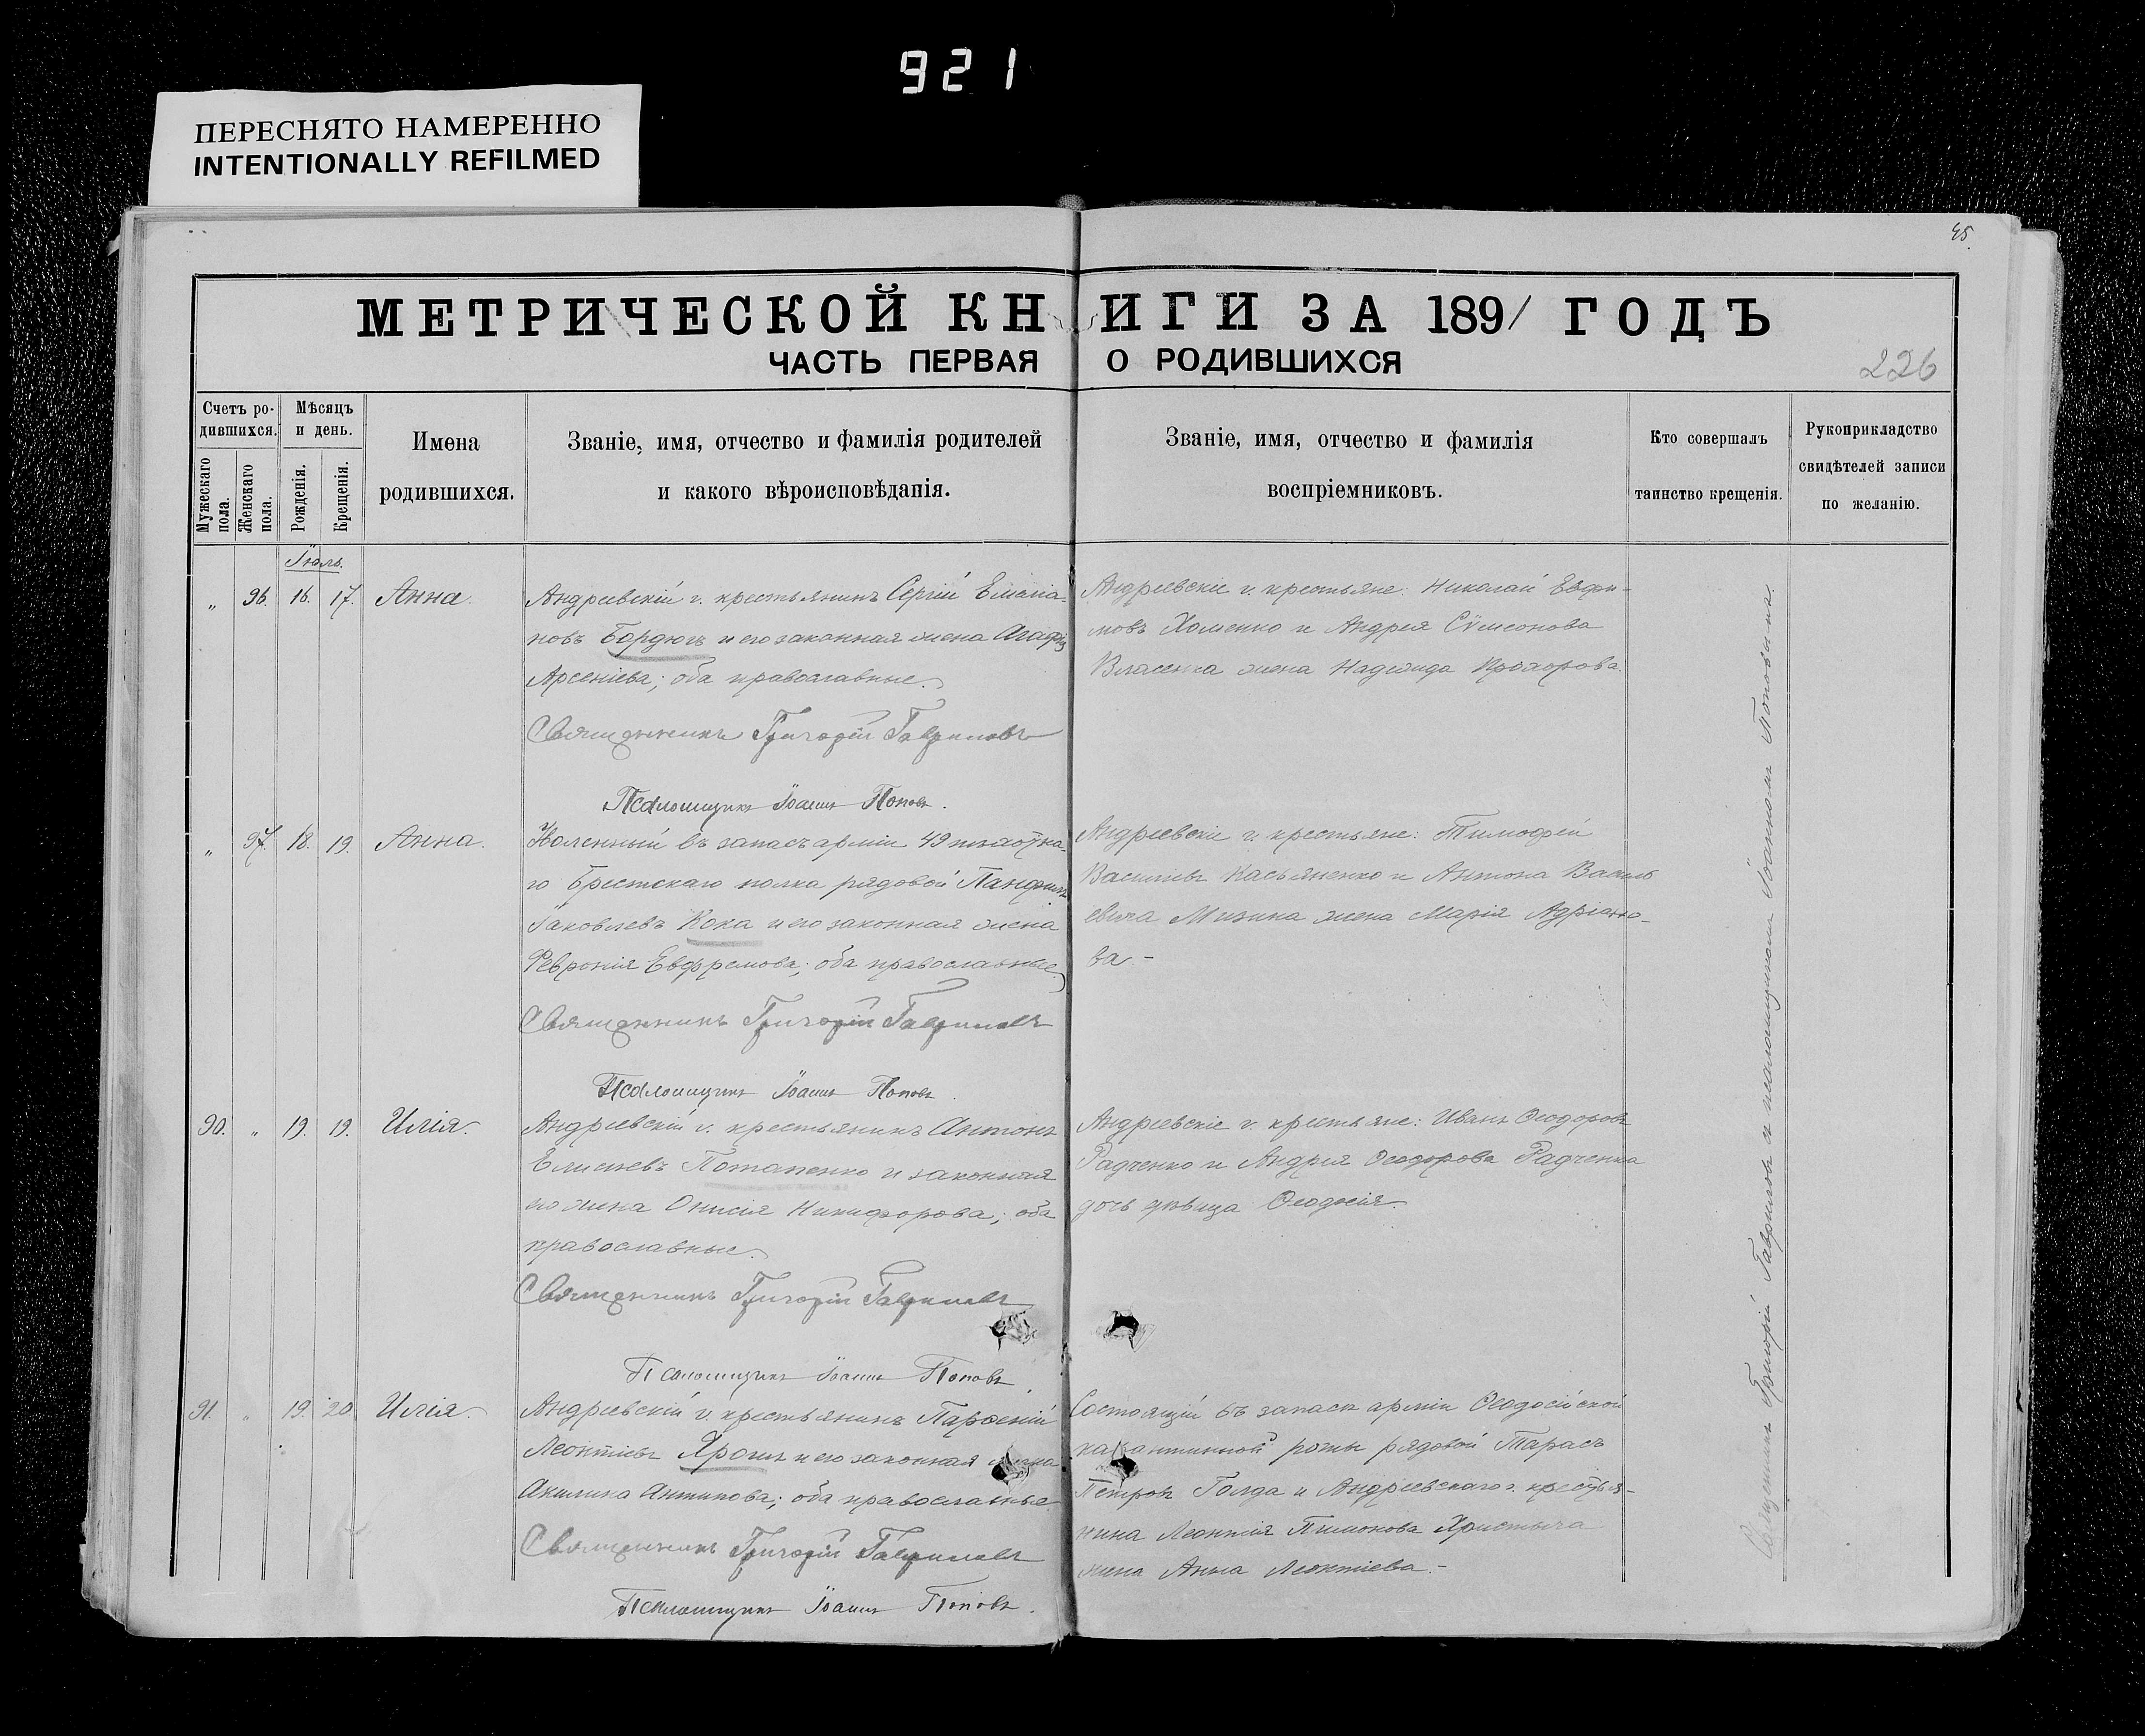 921
ПЕРЕСНЯТО НАМЕРЕННО
INTENTIONALLY REFILMED
45.
МЕТРИЧЕСКОЙ КНИГИ ЗА 1891 ГОДЪ
ЧАСТЬ ПЕРВАЯ О РОДИВШИХСЯ
226
Счетъ ро-
дившихся.
Мужескаго пола.
Женскаго пола.
Мѣсяцъ
и день.
Рожденія.
Крещенія.
Имена
родившихся.
Званіе, имя, отчество и фамилія родителей
и какого вѣроисповѣданія.
Званіе, имя, отчество и фамилія
воспріемниковъ.
Кто совершалъ
таинство крещенія.
Рукоприкладство
свидѣтелей записи
по желанію.
Іюль.
„ 96. 16. 17. Анна.
Андреевскій г. крестьянинъ Сергій Емелiа-
новъ Бордюгъ и его законная жена Агафія
Арсеніева; оба православные.
Священникъ Григорій Гавриловъ
Псаломщикъ Іоаннъ Поповъ.
Андреевскіе г. крестьяне: Николай Евфи-
мовъ Хоменко и Андрея Сѵмеонова
Власенка жена Надежда Прохорова.
„ 97. 18. 19. Анна.
Уволенный въ запасъ арміи 49 пѣхотна-
го Брестскаго полка рядовой Панфилъ
Іаковлевъ Кока и его законная жена
Февронія Евфремова; оба православные.
Священникъ Григорій Гавриловъ
Псаломщикъ Іоаннъ Поповъ.
Андреевскіе г. крестьяне: Тимофей
Васильевъ Касьяненко и Антона Василь
евича Мизина жена Марія Адріано-
ва -
90. „ 19. 19. Илія.
Андреевскій г. крестьянинъ Антонъ
Елисеевъ Потапенко и законная
его жена Онисія Никифорова; оба
православные.
Священникъ Григорій Гавриловъ
Псаломщикъ Іоаннъ Поповъ.
Андреевскіе г. крестьяне: Иванъ Ѳеодоровъ
Радченко и Андрея Ѳеодорова Радченка
дочь дѣвица Ѳеодосія.
91. „ 19. 20. Илія.
Андреевскій г. крестьянинъ Парѳеній
Леонтіевъ и его законная жена
Акилина Антипова; оба православные.
Священникъ Григорій Гавриловъ
Псаломщикъ Іоаннъ Поповъ.
Состоящій въ запасѣ арміи Ѳеодосійской
карантинной роты рядовой Тарасъ
Петровъ Голда и Андреевскаго г. крестья-
нина Леонтія Пимонова
жена Анна Леонтіева. -
Священникъ Григорій Гавриловъ и псаломщикомъ Іоанномъ Поповымъ.